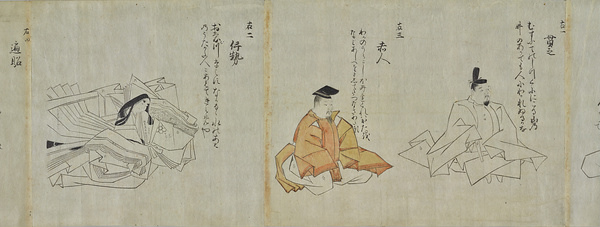 右一
貫之
むすふてのしつくににこる山の
井のあかても人にわかれぬるかな
右三
赤人
わかのうらにしほみちくれはかたを
なみあしへをさしてたつなきわたる
右二
伊勢
おもひ川たえすなかるゝ水のあわの
うたかた人にあはてきえめや
右四
遍昭